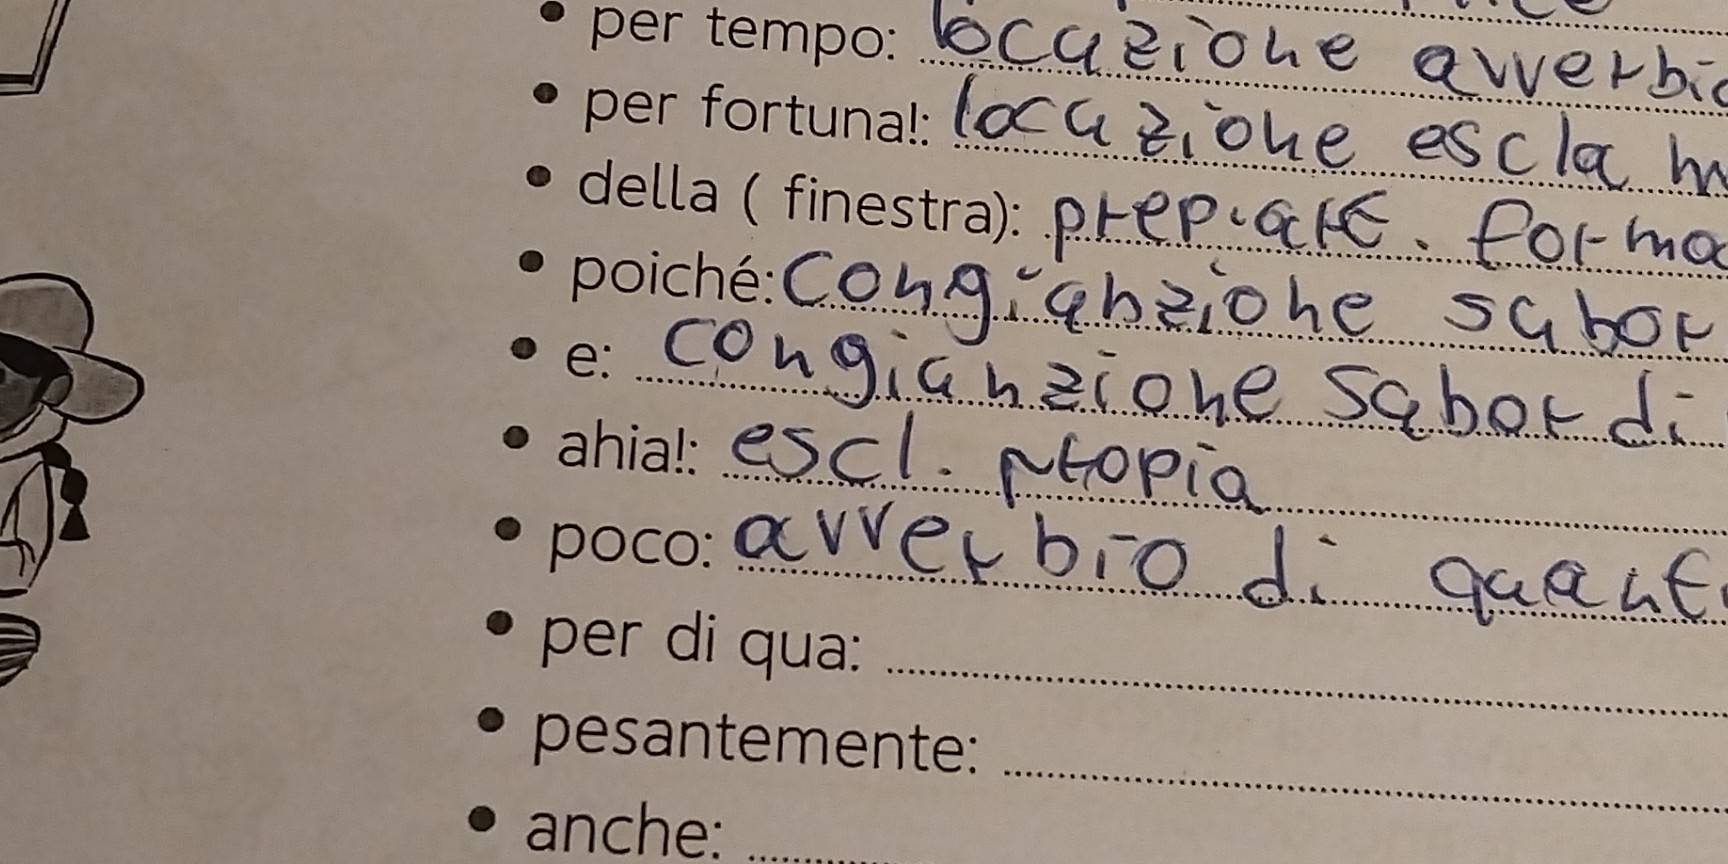 • per tempo: locuzione avverbio
• per fortuna!: locuzione esclam
• della ( finestra): prep. art. forma
• poiché: congiunzione subor
• e: congiunzione subordi
• ahia!: escl. propia
• poco: avverbio di quant
• per di qua:
• pesantemente:
• anche: